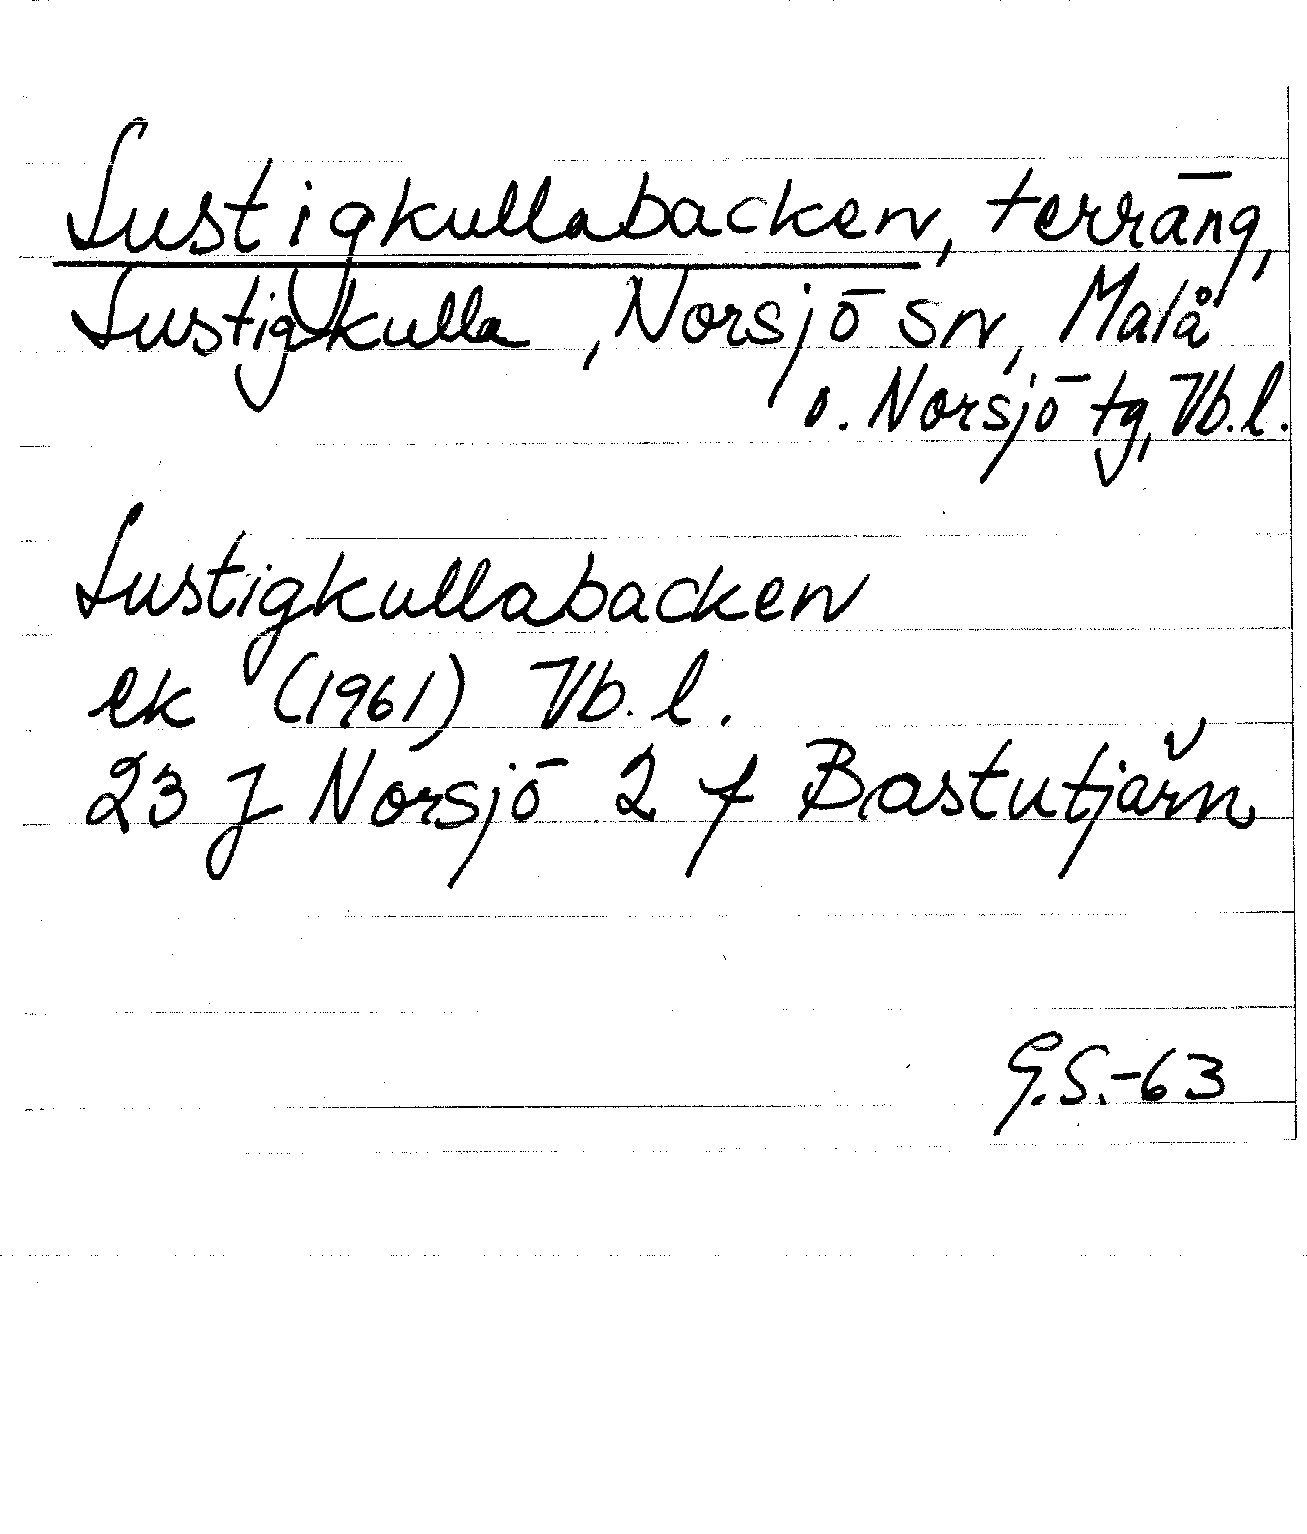 Lustigkullabacken, terräng,
Lustigkulla, Norsjö sn, Malå
o. Norsjö tg, Vb.l.
Lustigkullabacken
ek (1961) Vb.l.
23 J Norsjö 2 f Bastutjärn
G.S.-63